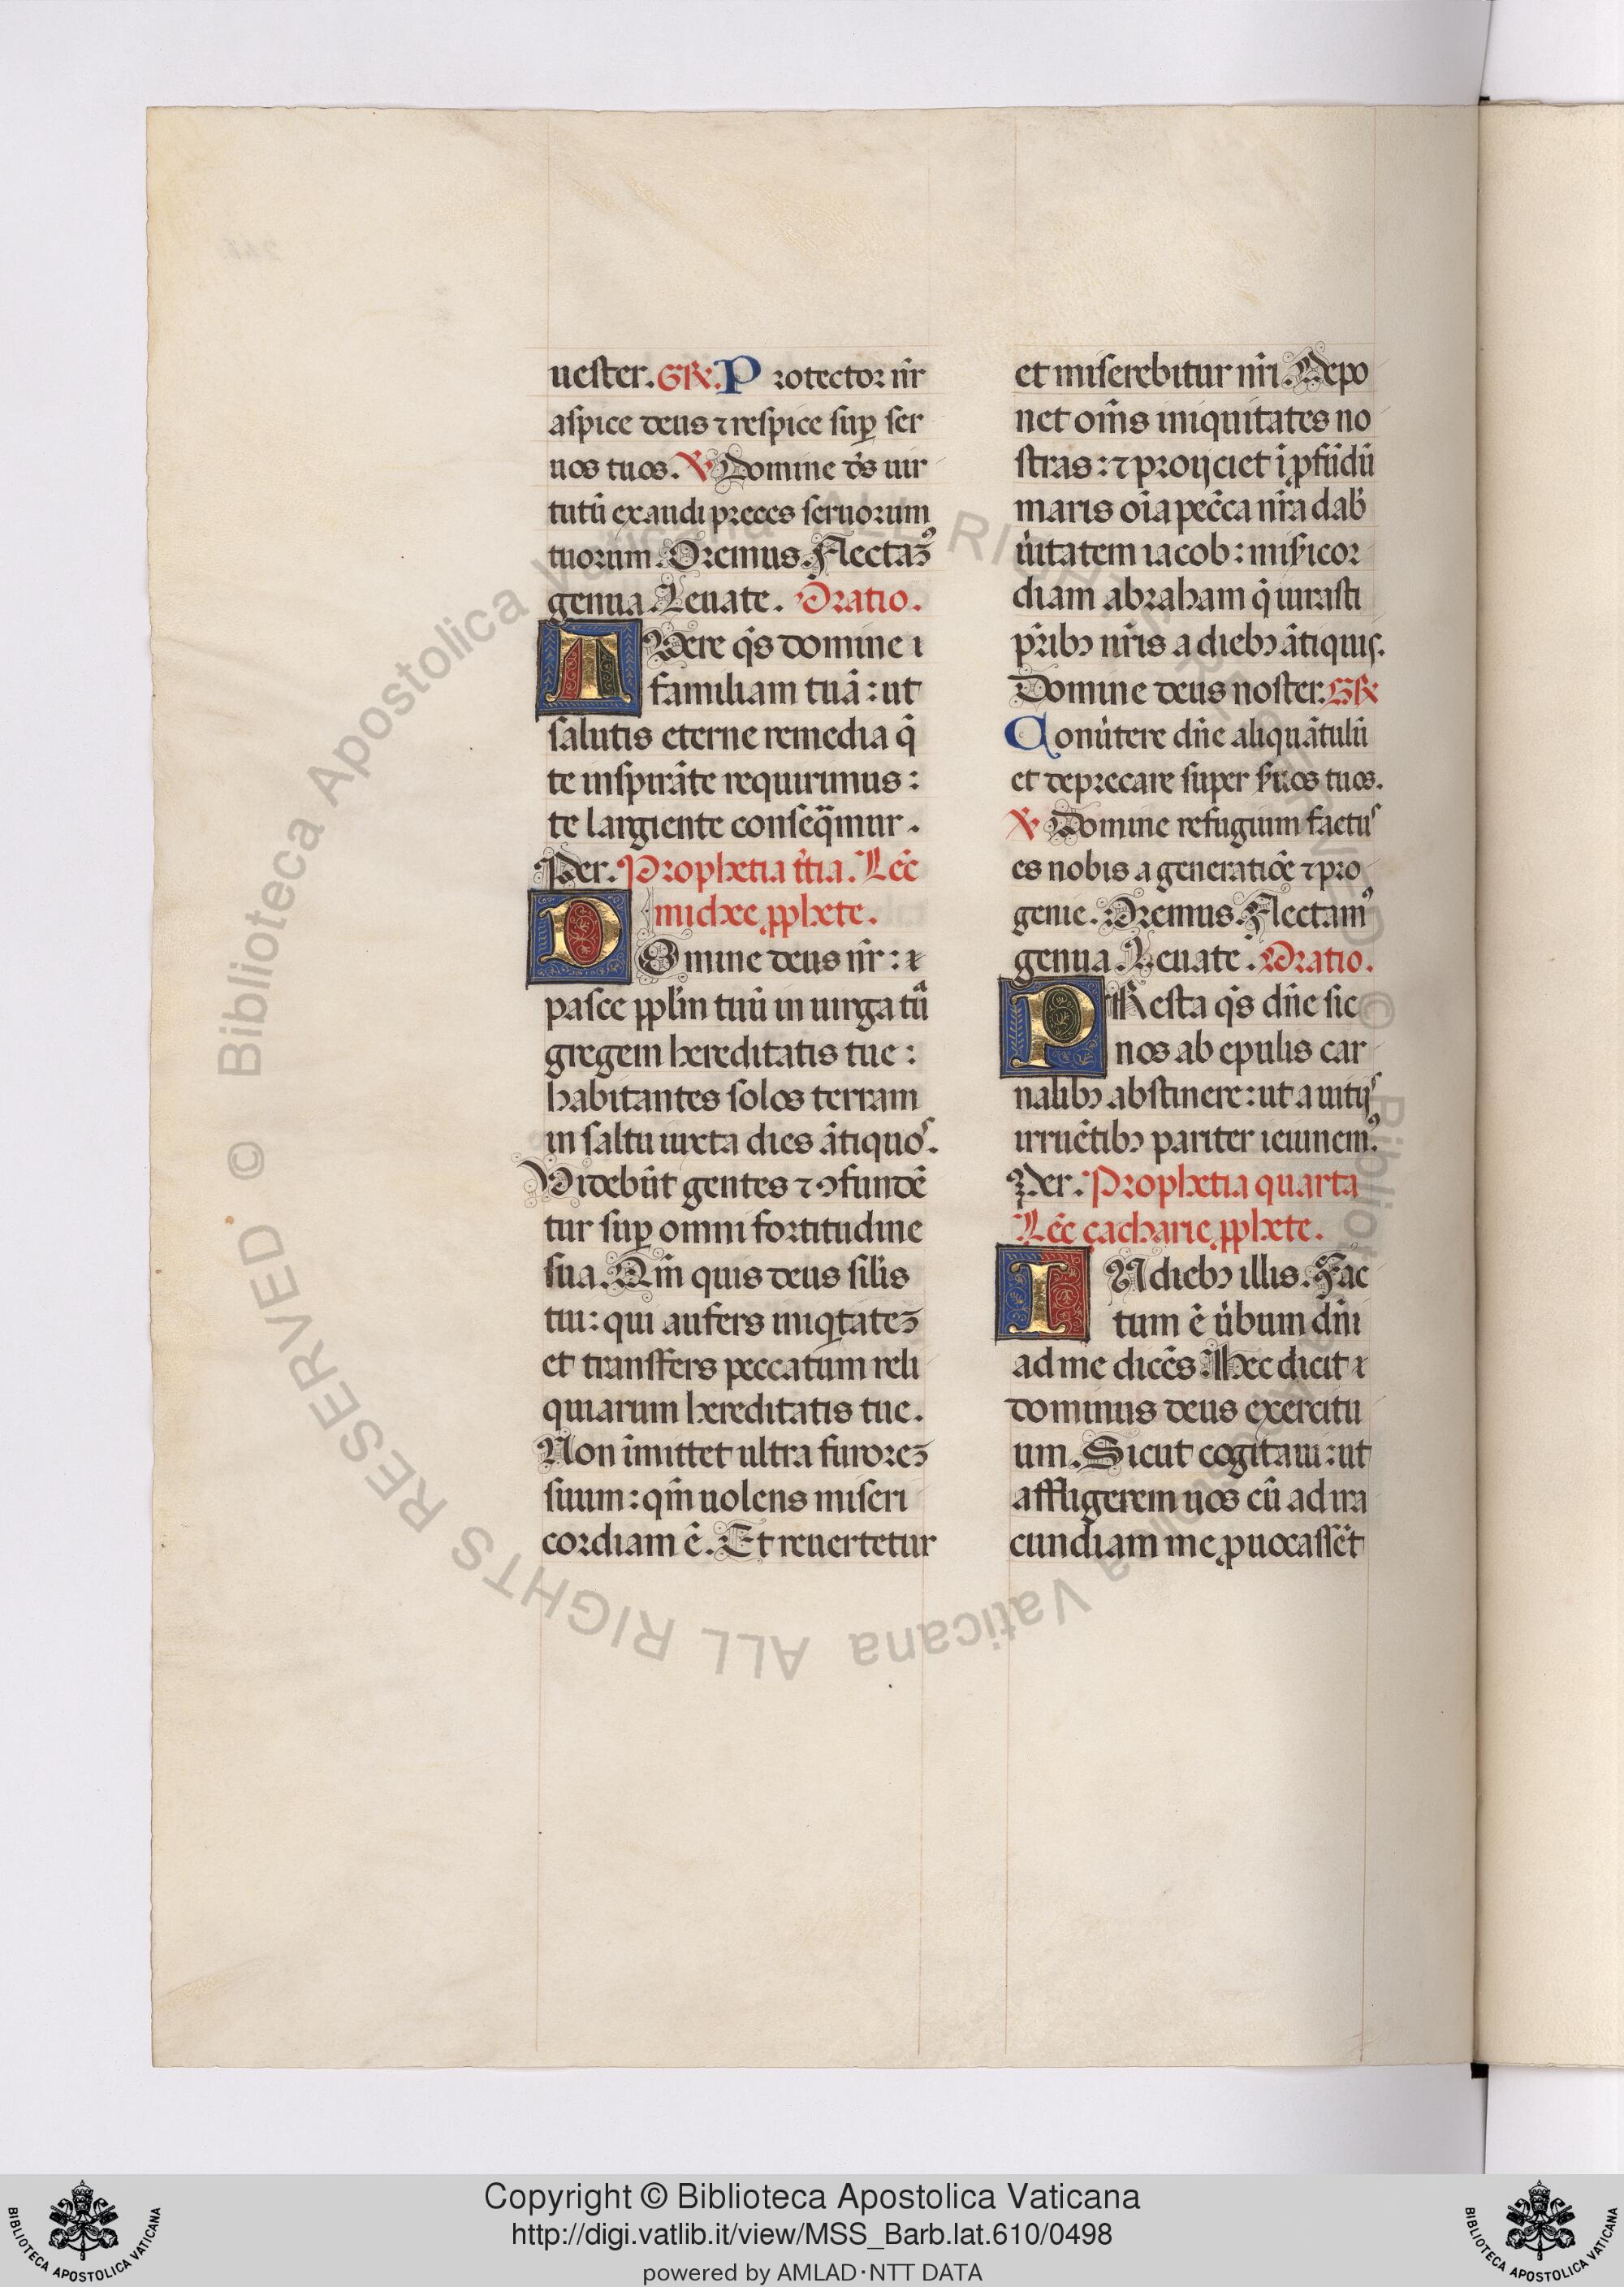 uester. GR̃. Protector nr̃
aspice deus ⁊ respice sup̲ ser
uos tuos. ℣ Domine ds̃ uir
tutũ exaudi preces seruorum
tuorum. Oremus. Flectamꝰ
genua. Leuate. Oratio.
TUere qs̃ domine
familiam tuã: ut
salutis eterne remedia q̃
te inspirãte requirimus:
te largiente conseq̃mur.
Per. Prophetia tʼtia. Lec̃
michee ꝓphete.
DOmine deus nr̃:
pasce pplʼm tuũ in uirga tũ
gregem hereditatis tue:
habitantes solos terram
in saltu iuxta dies ãtiquos.
Videbũt gentes ⁊ ↄfundẽ
tur sup̲ omni fortitudine
sua. Qm̃ quis deus silʼis
tui: qui aufers iniqͥtateꝫ
et transfers peccatum reli
quiarum hereditatis tue.
Non ĩmittet ultra furoreꝫ
suum: qm̃ uolens miseri
cordiam ẽ. Et reuertetur
et miserebitur nr̃i. Depo
net om̃s iniquitates no
stras: ⁊ proijciet ĩ ꝓfũdũ
maris oĩa pec̃ca nr̃a dabʼ
uʼitatem iacob: misʼicor
diam abraham q̃ iurasti
pr̃ibꝰ nr̃is a diebꝰ ãtiquis.
Domine deus noster. GR̃
Conuʼtere dñe aliquãtulũ
et deprecare super sʼuos tuos.
℣ Domine refugium factus
es nobis a generatiõe ⁊ pro
genie. Oremus. Flectamꝰ
genua. Leuate. Oratio.
PResta qs̃ dñe sic
nos ab epulis car
nalibꝰ abstinere: ut a uitijs
irruẽtibꝰ pariter ieiunemꝰ.
Per. Prophetia quarta
Lec̃ çacharie ꝓphete.
IN diebꝰ illis. Fac
tum ẽ uʼbum dñi
ad me dicẽs. Hec dicit
dominus deus exercitu
um. Sicut cogitaui: ut
affligerem uos cũ ad ira
cundiam me ꝓuocassẽt
© Biblioteca Apostolica Vaticana ALL RIGHTS RESERVED
Copyright © Biblioteca Apostolica Vaticana
http://digi.vatlib.it/view/MSS_Barb.lat.610/0498
powered by AMLAD·NTT DATA
BIBLIOTECA APOSTOLICA VATICANA
BIBLIOTECA APOSTOLICA VATICANA